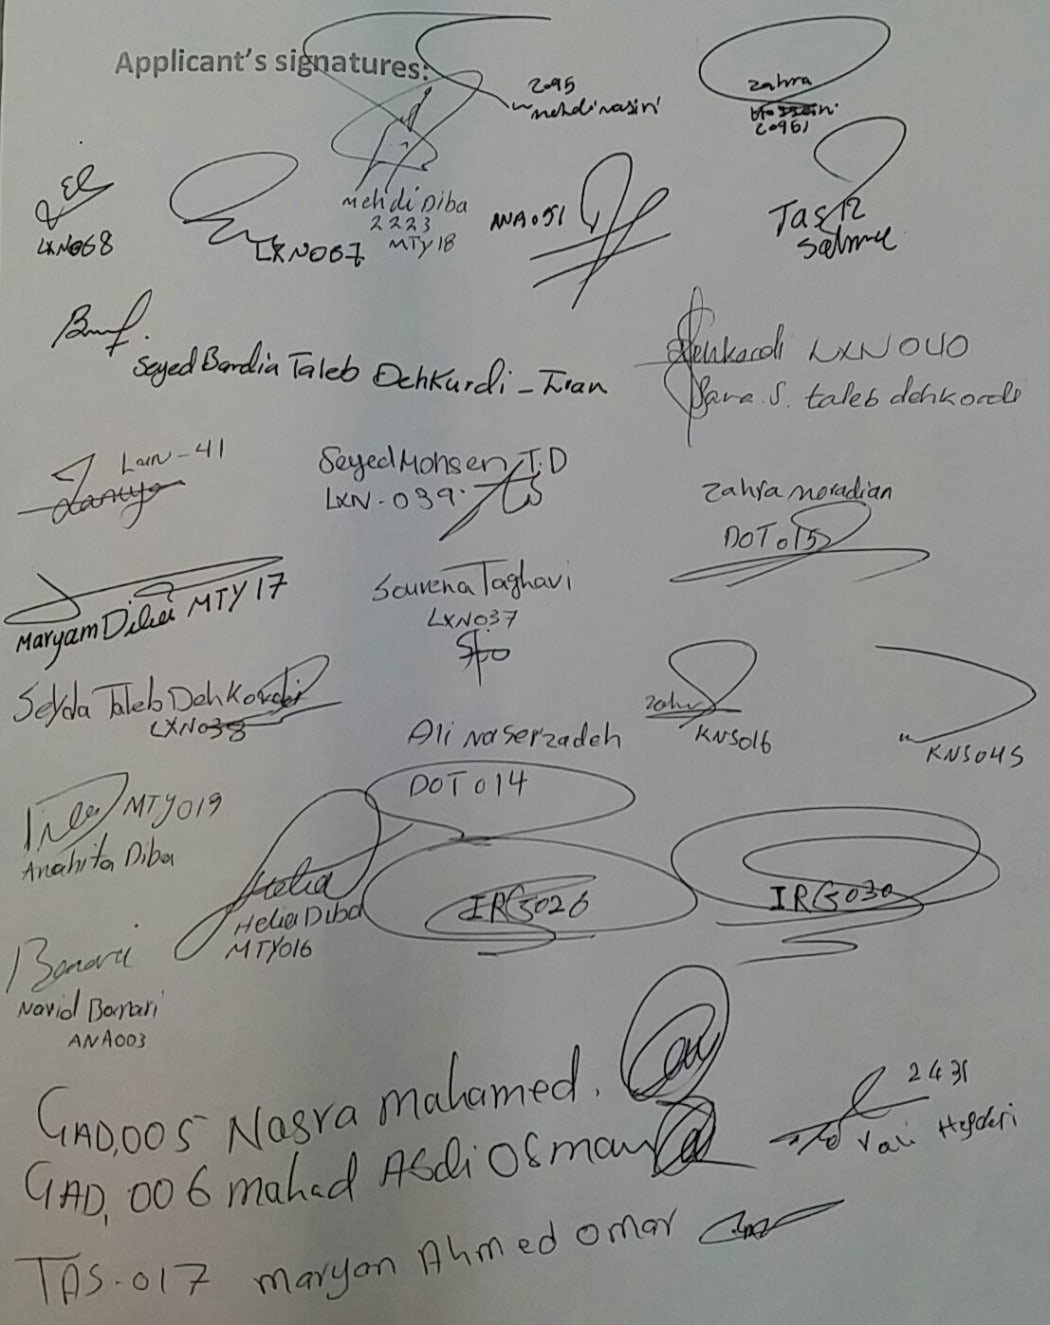 Applicant's signatures:
2095
mehdi nasiri
zahra
20951
LXN068
LXN067
Mehdi Diba
2223
MTY18
ANA051
TAS12
Seyed Bardia Taleb Dehkurdi - Iran
Dehkordi LXN040
Sara. S. taleb dehkordi
41
Seyed Mohsen T.D
LXN-039
Zahra moradian
DOT015
Maryam Diba MTY17
Sourena Taghavi
LXN037
Seyda Taleb Dehkordi
LXN038
zahra
KNS016
KNS045
Ali naserzadeh
DOT014
MTY019
Anahita Diba
Helia
Helia Diba
MTY016
IRG026
IRG030
Navid Bamari
ANA003
GAD,005 Nasra mahamed.
2431
GAD,006 mahad Asdi Osman
TAS-017 maryan Ahmed omar